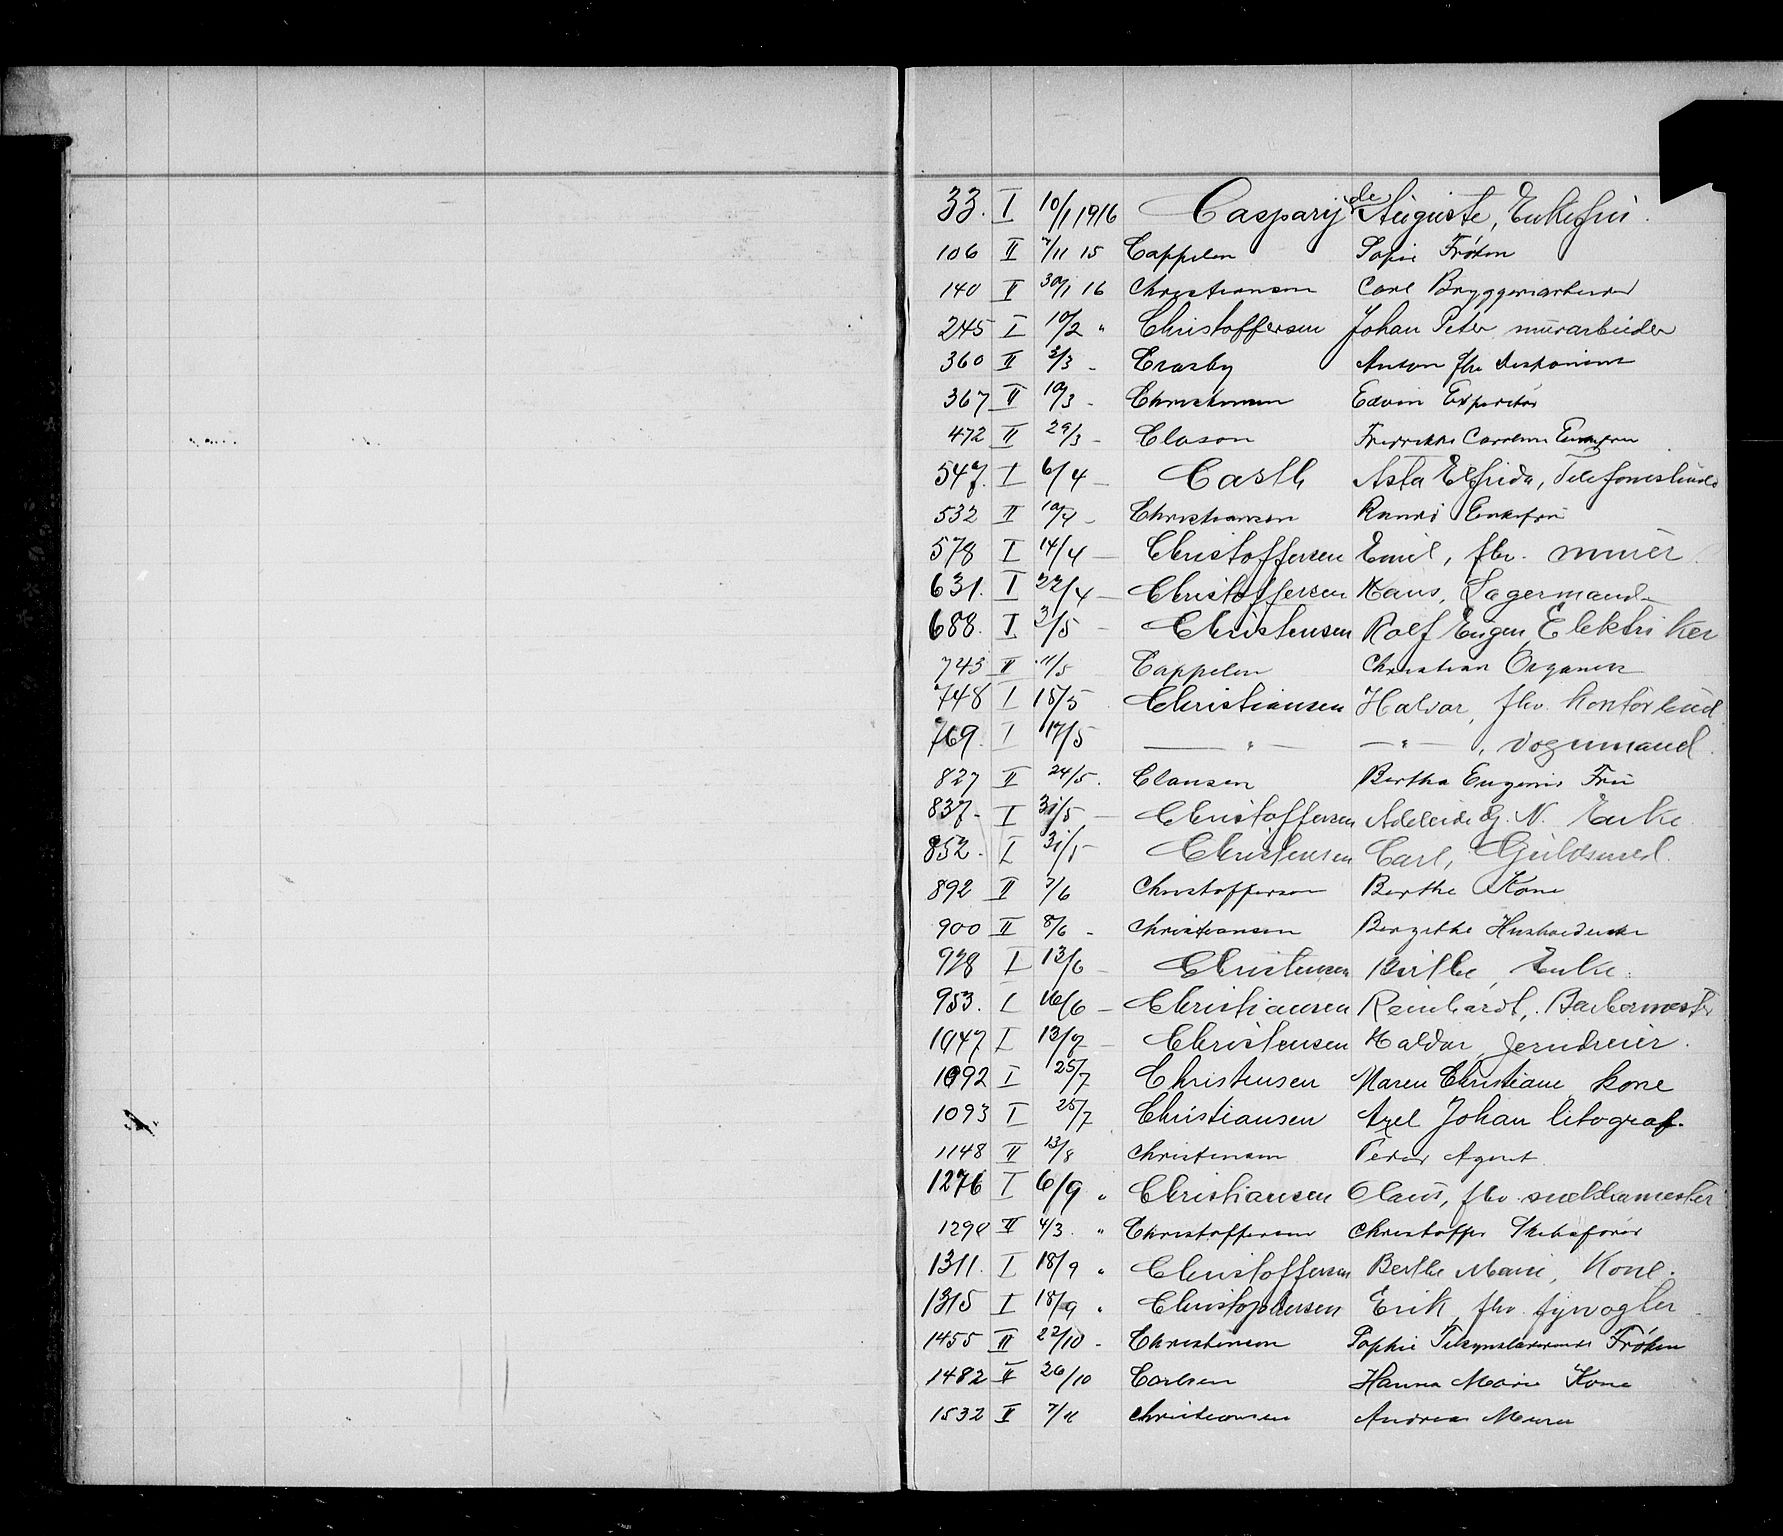 33. I 10/1 1916 Caspary de Auguste, Enkefru.
106 II 7/11 15 Cappelen Sofie Frøken
140 II 30/1 16 Christiansen Carl Bryggeriarbeider
245 I 10/2 " Christoffersen Johan Peter murarbeider
360 II 3/3 - Crasby Anton fhv disponent
367 II 10/3 - Christensen Edvin Expeditør
472 II 29/3 - Clason Fredrikke Enkefru
547. I 6/4 - Castb Asta Elfrida, Telefonistinde
532 II 10/4 - Christiansen Randi Enkefru
578 I 14/4 - Christoffersen Emil, fhv. murer
631. I 22/4 - Christoffersen Hans, Lagermand
688. I 3/5 - Christensen Rolf Eugen, Elektriker
743 II 11/5 Cappelen Christian Organist
748 I 15/5 Christiansen Halvor, fhv. Kontorbud
769. I 17/5 — " — — " — , vognmand.
827 II 24/5. Clausen Bertha Eugenie Fru
837. I 31/5 - Christoffersen Adeleide G. N. Enke
852. I 31/5 Christensen Carl, Guldsmed.
892 II 7/6 Christoffersen Berthe Kone
900 II 8/6 - Christiansen Bergithe Husholderske
928 I 13/6 - Christensen Birthe, Enke.
953. I 16/6 - Christiansen Reinhardt, Barbermester
1047 I 13/7 - Christensen Haldor, Jerndreier.
1092 I 25/7 Christensen Maren Christiane kone
1093 I 25/7 Christiansen Axel Johan litograf.
1148 II 23/8 Christensen Peder Agent
1276 I 6/9 " Christiansen Olaus, fhv.
1290 II 4/3. " Christoffersen Christoffer Skibsfører
1311. I 18/9 " Christoffersen Berthe Marie, Kone.
1315 I 18/9 " Christophersen Erik, fhv. fyrvogter
1455 II 22/10 - Christensen Sophie Frøken
1482 II 26/10 Carlsen Hanna Marie Kone
1532 II 7/11 Christiansen Andreas Murer